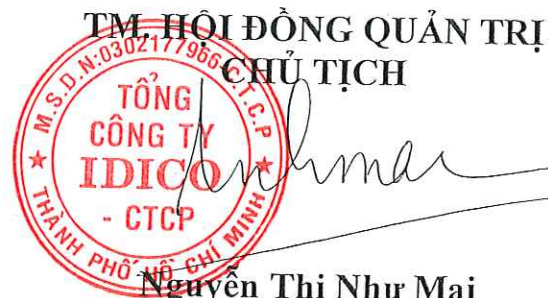 TM. HỘI ĐỒNG QUẢN TRỊ
CHỦ TỊCH
M.S.D.N:0302177966-C.T.C.P
TỔNG
CÔNG TY
IDICO
- CTCP
THÀNH PHỐ HỒ CHÍ MINH
Nguyễn Thị Như Mai